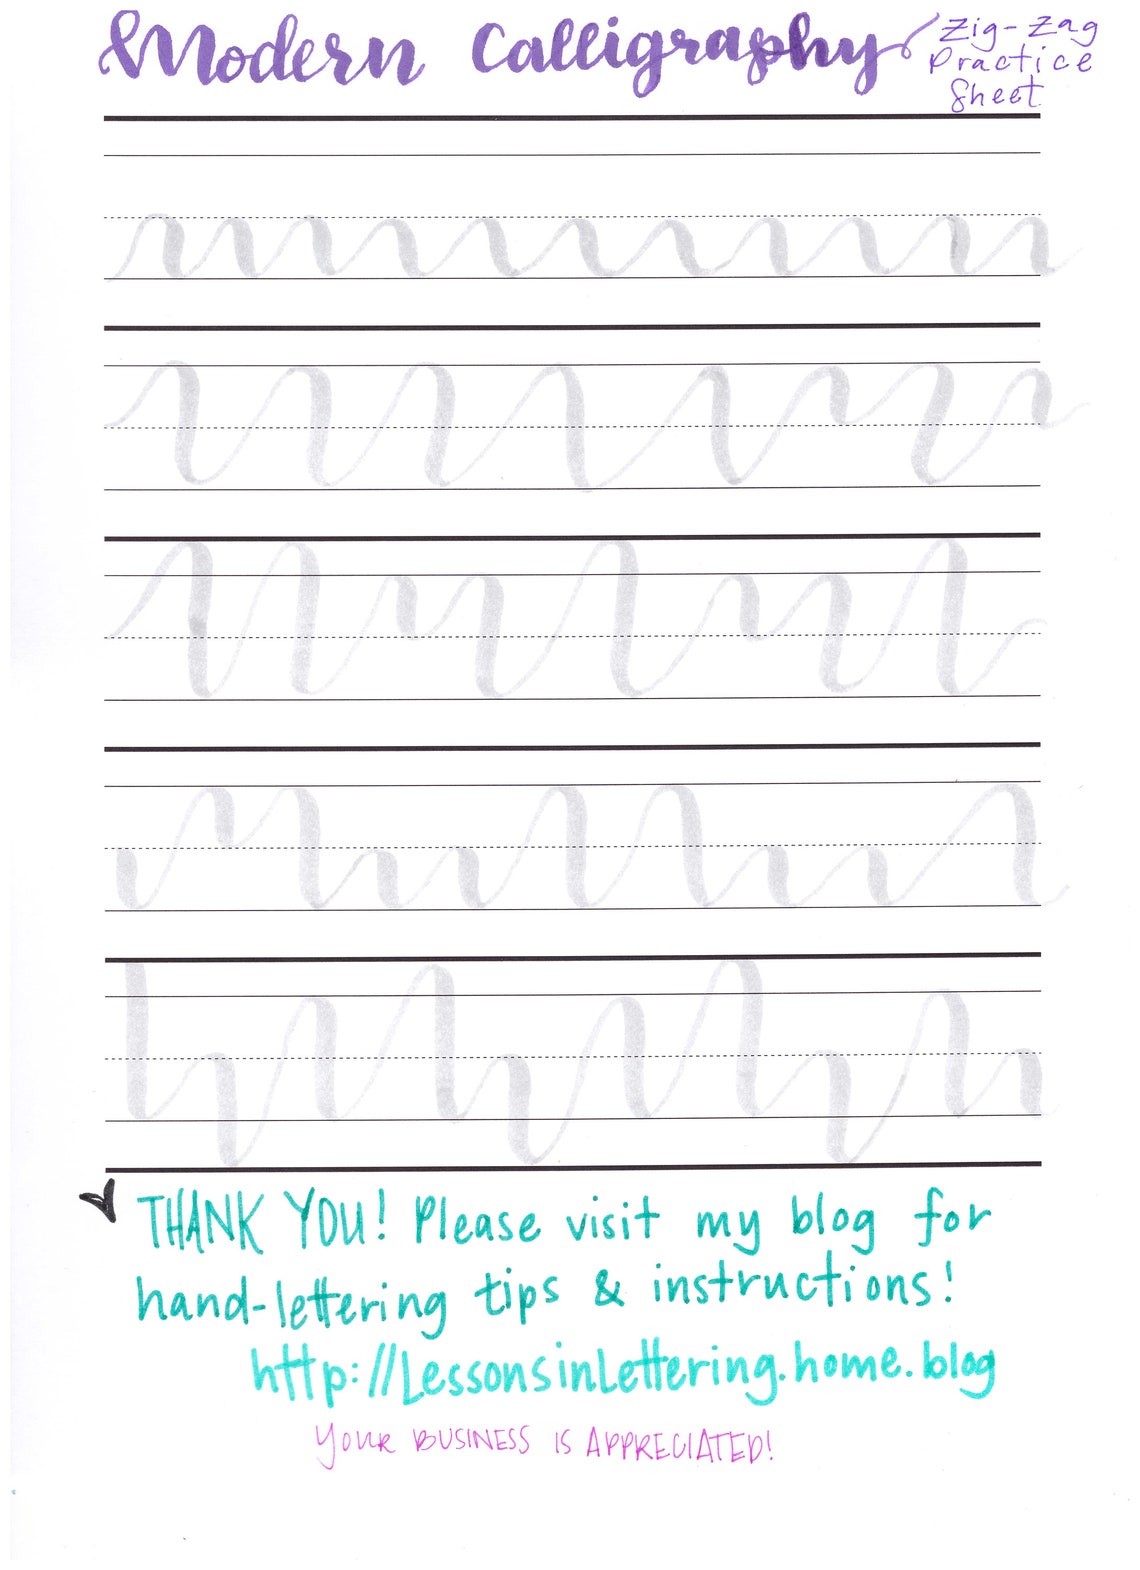 Modern Calligraphy
Zig-Zag
Practice
Sheet
THANK YOU! Please visit my blog for
hand-lettering tips & instructions!
http://LessonsinLettering.home.blog
YOUR BUSINESS IS APPRECIATED!